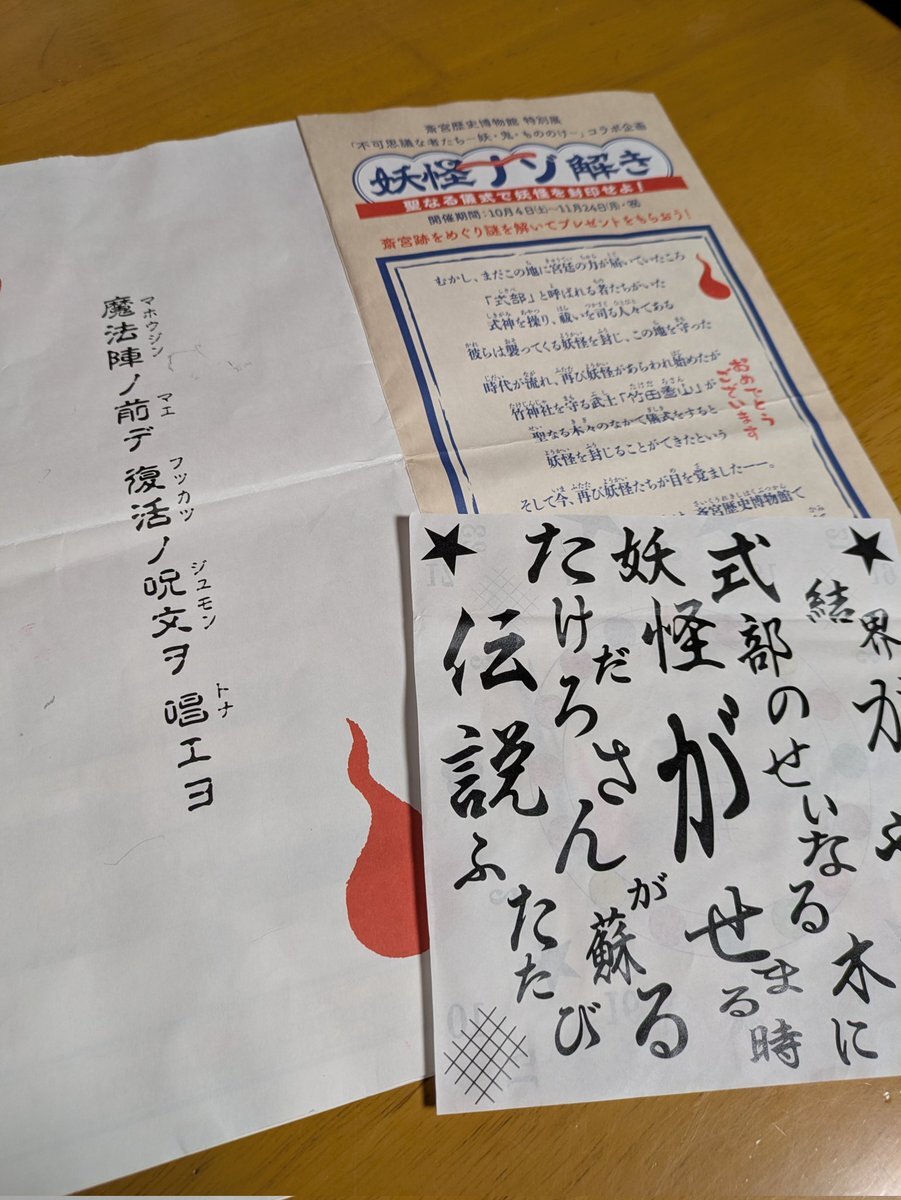 マホウジン マエ フッカツ ジュモン トナ
魔法陣ノ前デ 復活ノ呪文ヲ 唱エヨ
斎宮歴史博物館 特別展
「不可思議な者たち―妖・鬼・もののけ―」コラボ企画
妖怪ナゾ解き
聖なる儀式で妖怪を封印せよ！
開催期間：10月4日(土)～11月24日(月・祝)
斎宮跡をめぐり謎を解いてプレゼントをもらおう！
むかし、まだこの地に宮廷の力が届いていたころ
「式部」と呼ばれる者たちがいた
式神を操り、祓いを司る人々である
彼らは襲ってくる妖怪を封じ、この地を守った
時代が流れ、再び妖怪があらわれ始めたが
竹神社を守る武士「竹田山」が
聖なる木々のなかで儀式をすると
妖怪を封じることができたという
そして今、再び妖怪たちが目を覚ました――。
斎宮歴史博物館で
おめでとう
ございます
結界が
式部のせいなる木に
妖怪がせまる時
たけだろさんが蘇る
伝説ふたたび